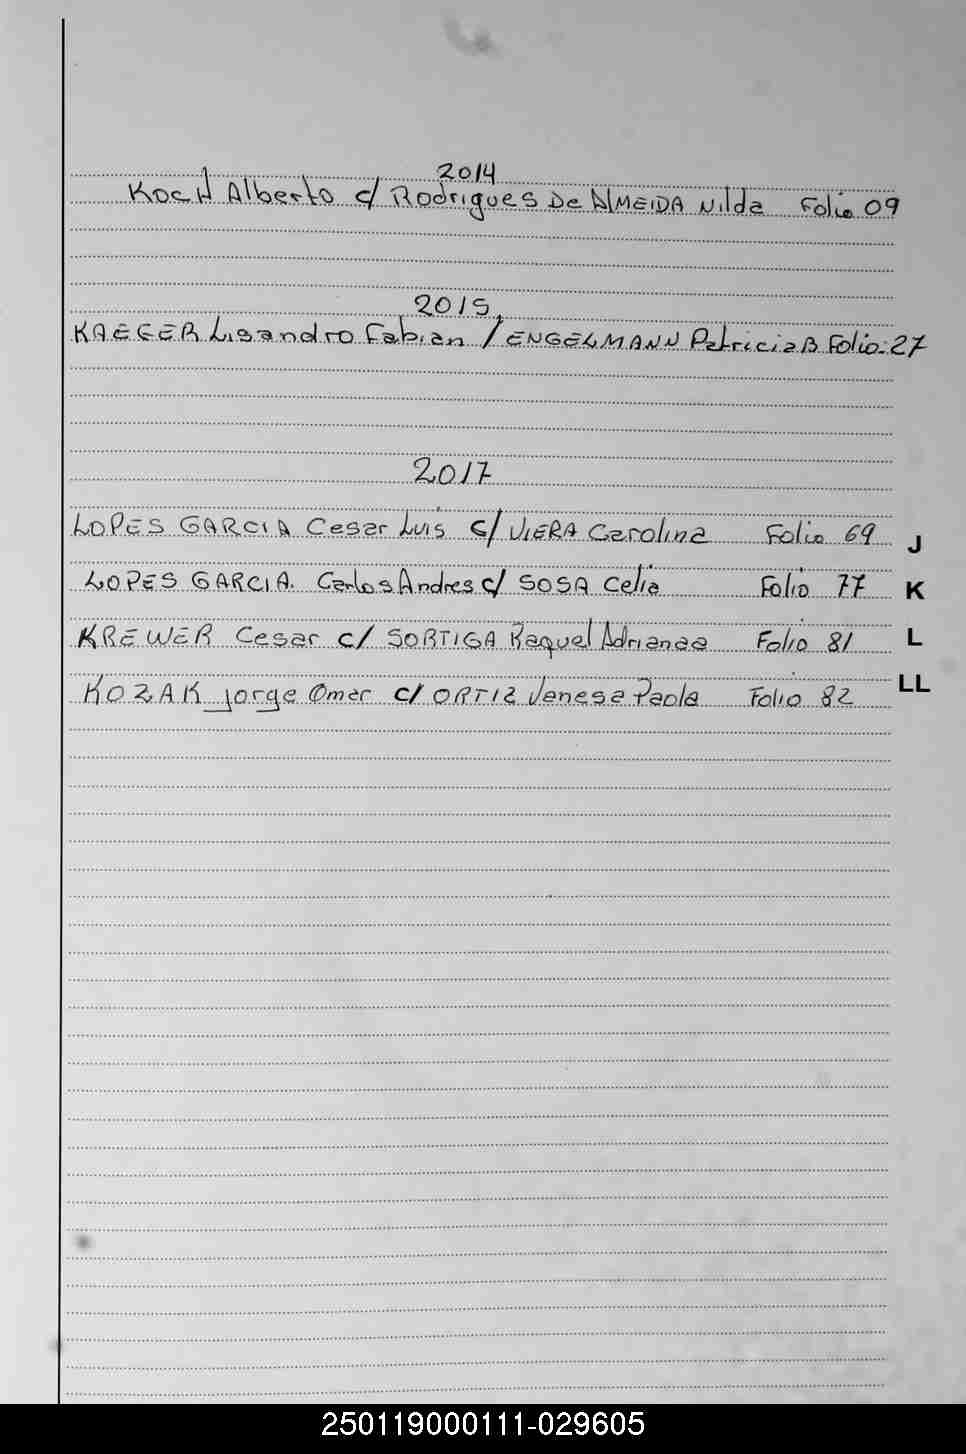 2014
KOCH Alberto c/ Rodrigues De ALMEIDA Nilda Folio 09
2015
KAEGER Lisandro Fabian / ENGELMANN Patricia B Folio: 27
2017
LOPES GARCIA Cesar Luis c/ VIERA Carolina Folio 69
J
LOPES GARCIA. Carlos Andres c/ SOSA Celia Folio 77
K
KREWER Cesar c/ SORTIGA Raquel Adrianaa Folio 81
L
KOZAK jorge Omar c/ ORTIZ Vanesa Paola Folio 82
LL
250119000111-029605